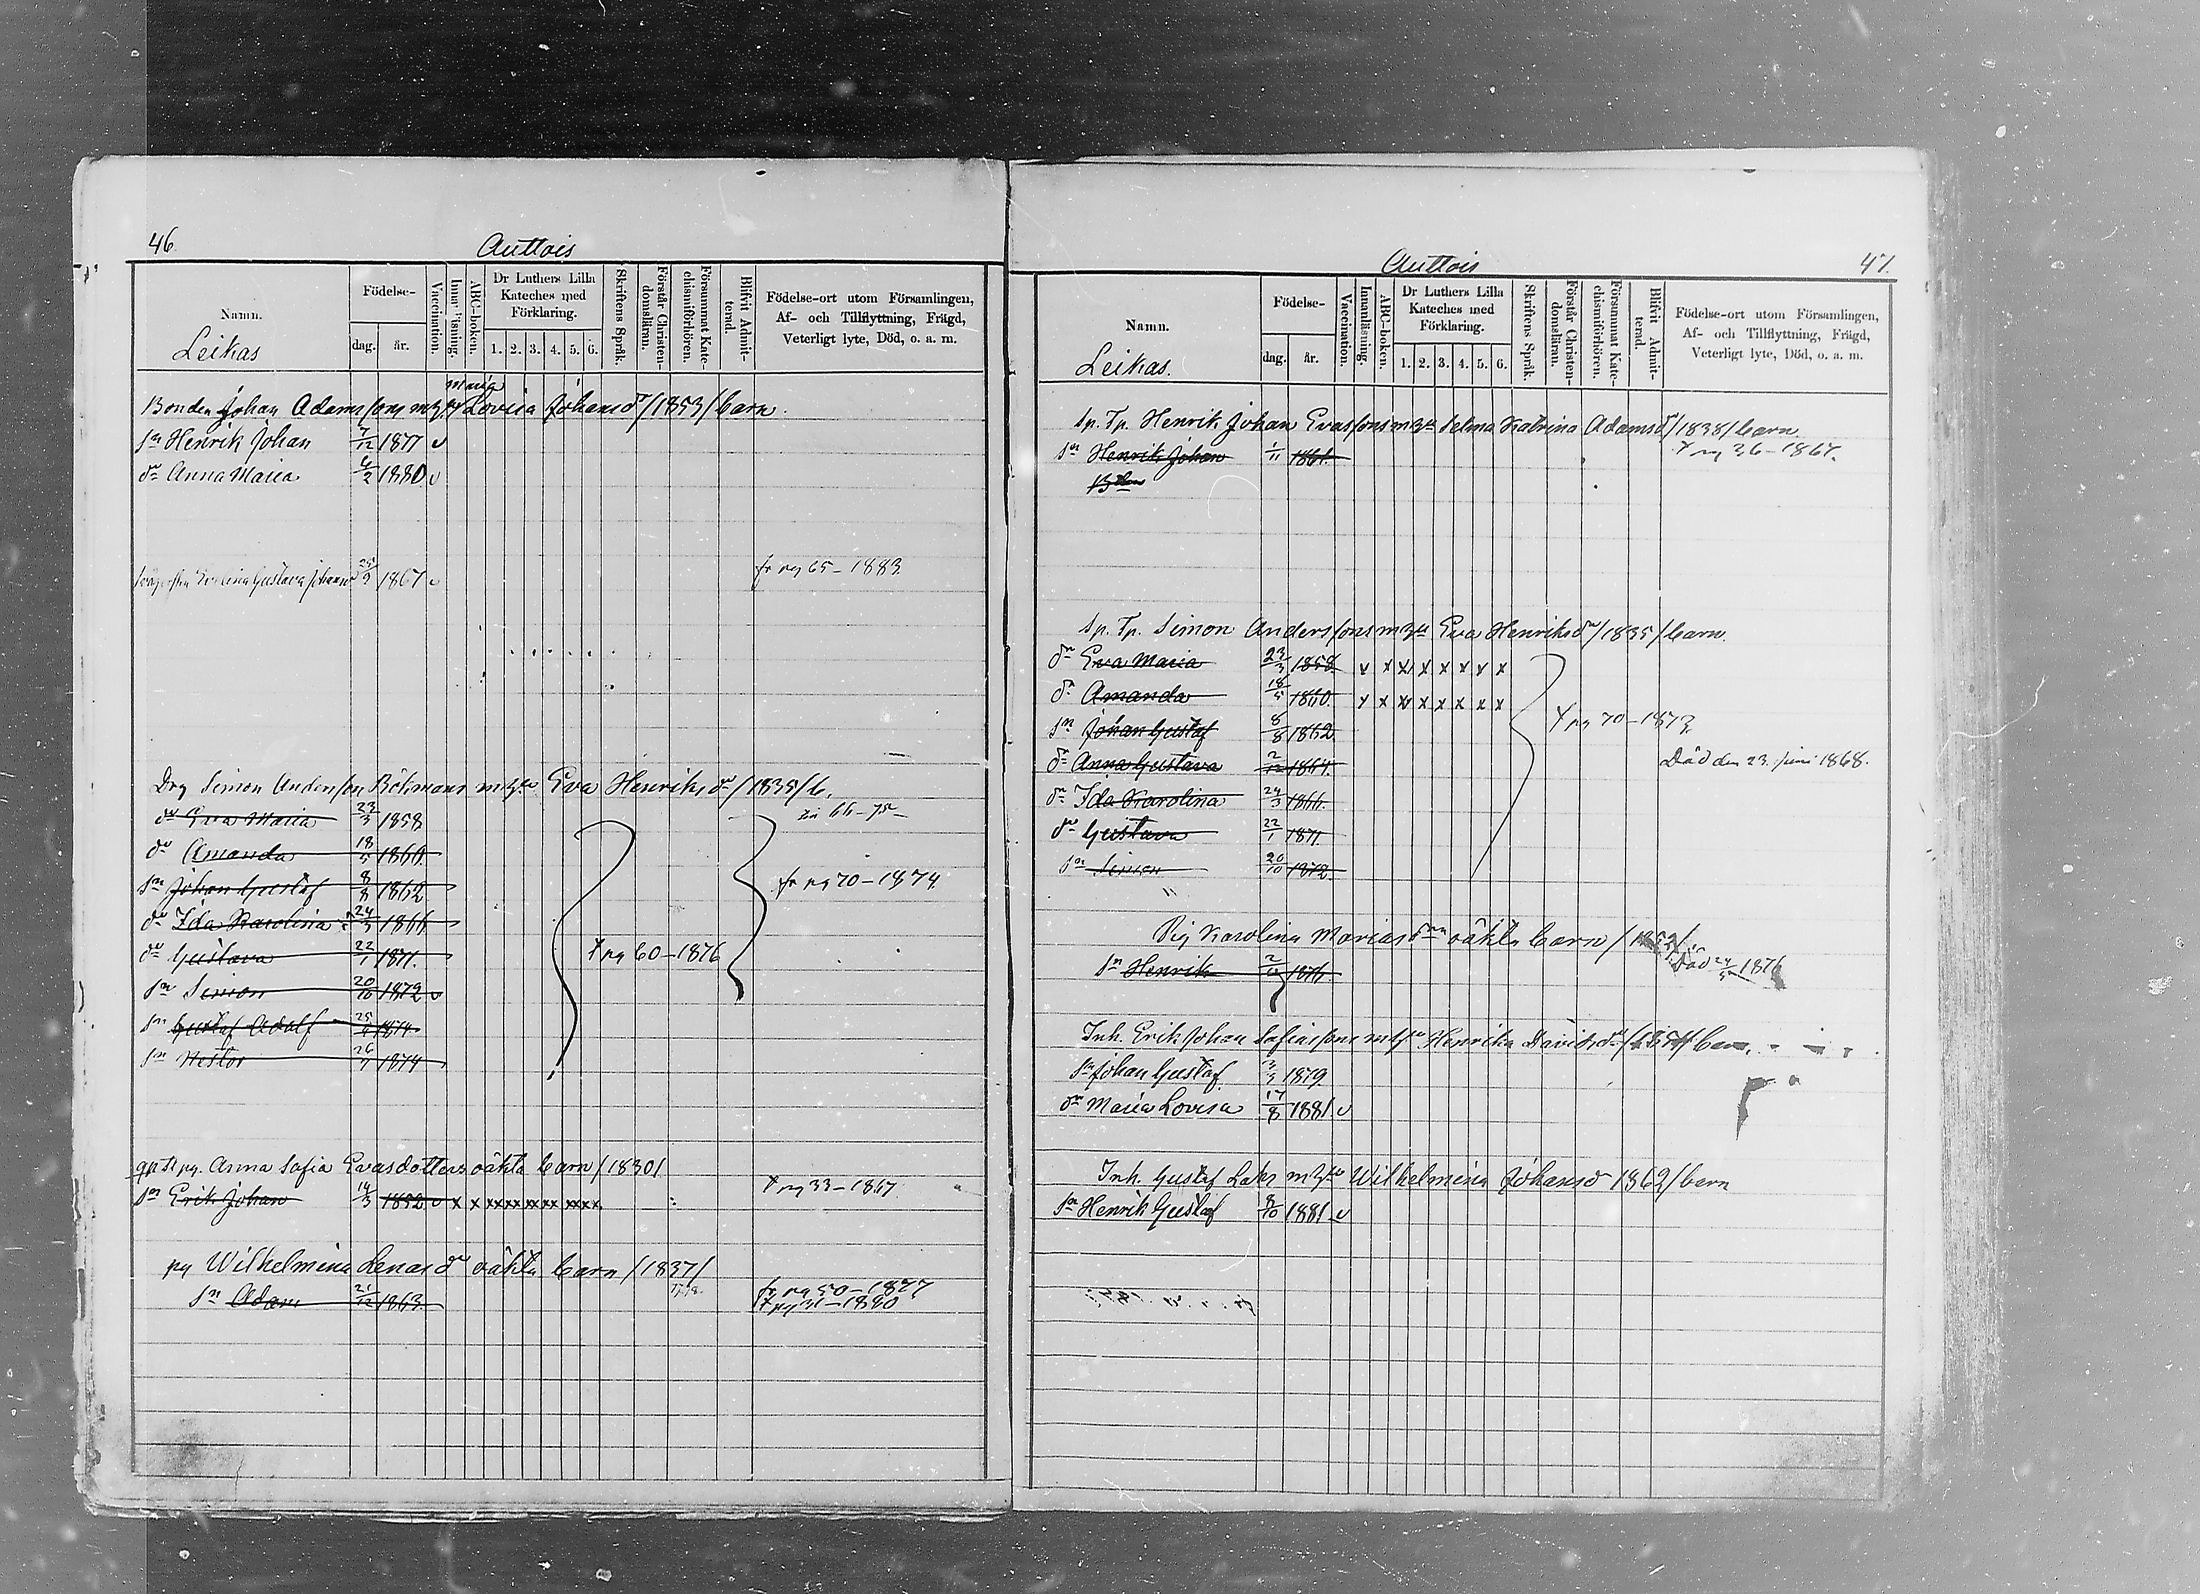 46.
Auttois
Namn.
Födelse-
dag.
år.
Vaccination.
Innanläsning.
ABC-boken.
Dr Luthers Lilla
Kateches med
Förklaring.
1. 2. 3. 4. 5. 6.
Skriftens Språk.
Förstår Christen-
domsläran.
Försummat Kate-
chismiförhören.
Blifvit Admit-
terad.
Födelse-ort utom Församlingen,
Af- och Tillflyttning, Frägd,
Veterligt lyte, Död, o. a. m.
Leikas
Maria
Bonden Johan Adamssons m h Lovisa Johansdr /1853/ barn.
sn Henrik Johan 7/12 1877 v
dr Anna Maria 6/2 1880 v
Evelina Gustava 1867 v fr pg 65 - 1883.
Drg Simon Andersson Böhmans m h Eva Henriksdr /1835/ b.
dr Eva Maria 23/3 1858 66-75
dr Amanda 18/5 1860
sn Johan Gustaf 8/8 1862 fr pg 70 - 1874
dr Ida Karolina 24/3 1866
dr Gustava 22/1 1871. pg 60 - 1876
sn Simon 20/10 1872 v
sn Gustaf Adolf 1874
sn Nestor 1874
Anna Sofia Evasdotters oäkta barn /1830/
sn Erik Johan 14/3 1852 v x x x x x x x x x x x x pg 33 - 1867
pg Wilhelmina Lenasdr oäkta barn /1837/
sn Adam 21/12 1863. fr pg 50 - 1877
pg 31 - 1880
Auttois
47.
Namn.
Födelse-
dag.
år.
Vaccination.
Innanläsning.
ABC-boken.
Dr Luthers Lilla
Kateches med
Förklaring.
1. 2. 3. 4. 5. 6.
Skriftens Språk.
Förstår Christen-
domsläran.
Försummat Kate-
chismiförhören.
Blifvit Admit-
terad.
Födelse-ort utom Församlingen,
Af- och Tillflyttning, Frägd,
Veterligt lyte, Död, o. a. m.
Leikas.
Sp. Tp. Henrik Johan Evassons m h Selma Katrina Adamsd /1838/ barn
sn Henrik Johan 1/11 1861. pg 36 - 1867.
Sp. Tp. Simon Anderssons m h Eva Henriksdr /1835/ barn.
dr Eva Maria 23/3 1858 v x x x x x x x
dr Amanda 18/5 1860. v x x x x x x x
sn Johan Gustaf 8/8 1862 pg 70 - 1873.
dr Anna Gustava 2/12 1864. Död den 23. juni 1868.
dr Ida Karolina 24/3 1866.
dr Gustava 22/1 1871.
sn Simon 20/10 1872.
"
Pig Karolina Mariasdrs oäkta barn
sn Henrik 1876. Död 1876
Inh. Erik Johan Safiassons m h Henrika Davidsdr barn.
sn Johan Gustaf 1879
dr Maria Lovisa 17/8 1881 v
Inh. Gustaf Laks m h Wilhelmina Johansd 1862/ barn
sn Henrik Gustaf 8/10 1881 v